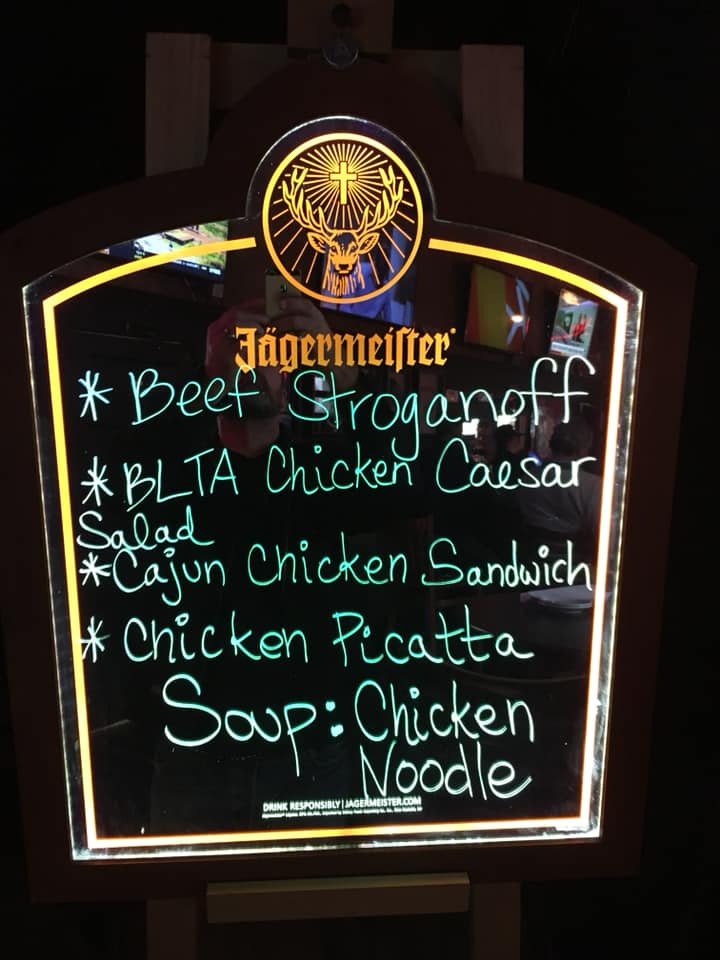 Jägermeiſter
* Beef Stroganoff
* BLTA Chicken Caesar
Salad
* Cajun Chicken Sandwich
* Chicken Picatta
Soup: Chicken
Noodle
DRINK RESPONSIBLY | JAGERMEISTER.COM